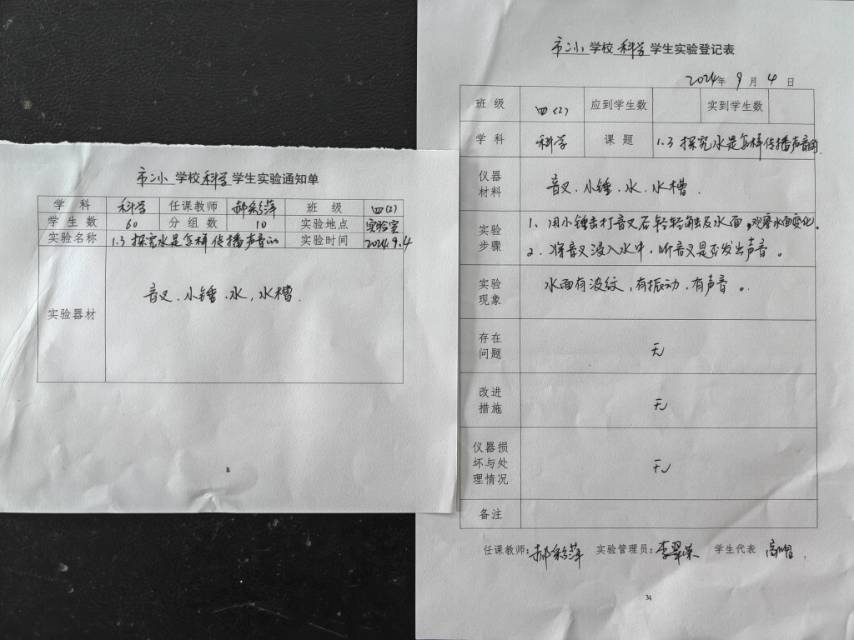 市二小学校科学学生实验通知单
学科 科学 任课教师 郝彩萍 班级 四(2)
学生数 60 分组数 10 实验地点 实验室
实验名称 1.3 探究水是怎样传播声音的 实验时间 2024.9.4
实验器材 音叉、小锤、水,水槽.
市二小学校科学学生实验登记表
2024年9月4日
班级 四(2) 应到学生数 实到学生数
学科 科学 课题 1.3 探究水是怎样传播声音的
仪器材料 音叉、小锤、水、水槽.
实验步骤 1、用小锤击打音叉后轻轻触及水面,观察水面变化.
2、将音叉浸入水中,听音叉是否发出声音。
实验现象 水面有波纹,有振动,有声音。
存在问题 无
改进措施 无
仪器损坏与处理情况 无
备注
任课教师:郝彩萍 实验管理员:李翠荣 学生代表
34